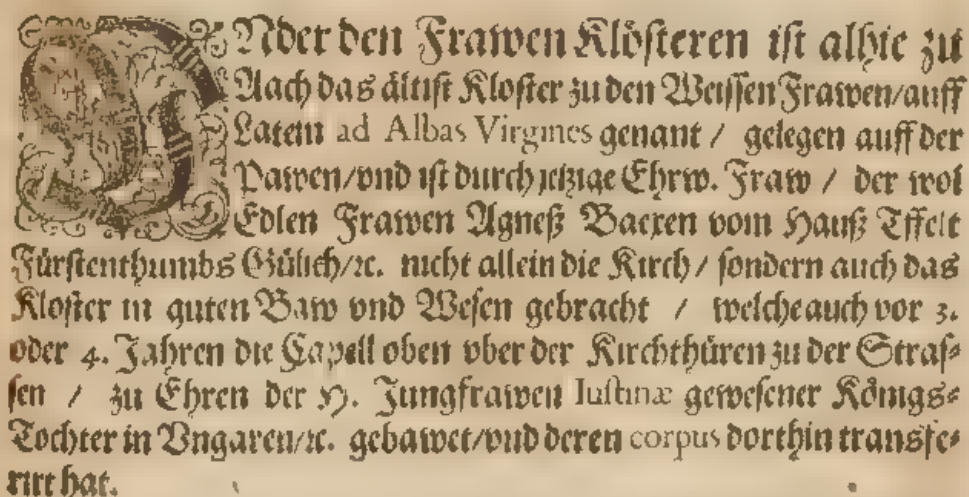 UNder den Frawen Klösteren ist alhie zu
Aach das ältist Kloster zu den Weissen Frawen/auff
Latein ad Albas Virgines genant / gelegen auff der
Pawen/vnd ist durch jetzige Ehrw. Fraw / der wol
Edlen Frawen Agneß Baexen vom Hauß Iffelt
Fürstenthumbs Gülich/ꝛc. nicht allein die Kirch / sondern auch das
Kloster in guten Baw vnd Wesen gebracht / welche auch vor 3.
oder 4. Jahren die Capell oben vber der Kirchthüren zu der Stras⸗
sen / zu Ehren der H. Jungfrawen Iustinæ gewesener Königs⸗
Tochter in Vngaren/ꝛc. gebawet/vnd deren corpus dorthin transfe⸗
rirt hat.